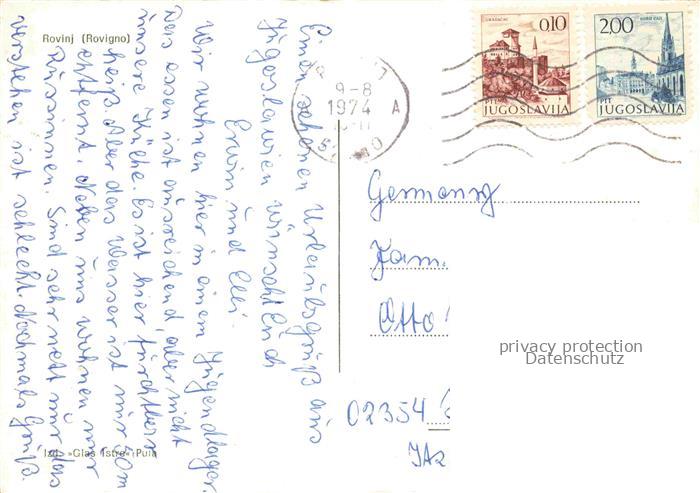 Rovinj (Rovigno)
Einen schönen Urlaubsgruß aus
Jugoslawien wünscht Euch
Erwin und Elli.
Wir wohnen hier in einem Jugendlager.
Das essen ist ausreichend, aber nicht
unsere Küche. Es ist hier furchtbar
heiß. Aber das Wasser ist nur 50m
entfernt. Neben uns wohnen nur
Russinnen. Sind sehr nett nur das
verstehen ist schlecht. Nochmals Gruß.
Izd. »Glas Istre« Pula
9-8
1974
A
GRADAČAC
0,10
PTT
JUGOSLAVIJA
NOVI SAD
2,00
PTT
JUGOSLAVIJA
Germany
Fam.
Otto
privacy protection
Datenschutz
02354